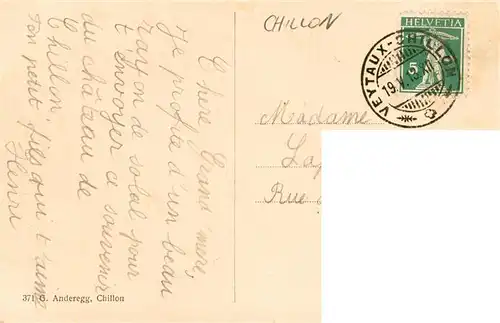 Chère Grand'mère,
Je profite d'un beau
rayon de soleil pour
t'envoyer ce souvenir
du château de
Chillon.
Ton petit fils qui t'aime
Henri
CHILLON
HELVETIA
5
VEYTAUX-CHILLON
Madame
Rue
371 G. Anderegg, Chillon